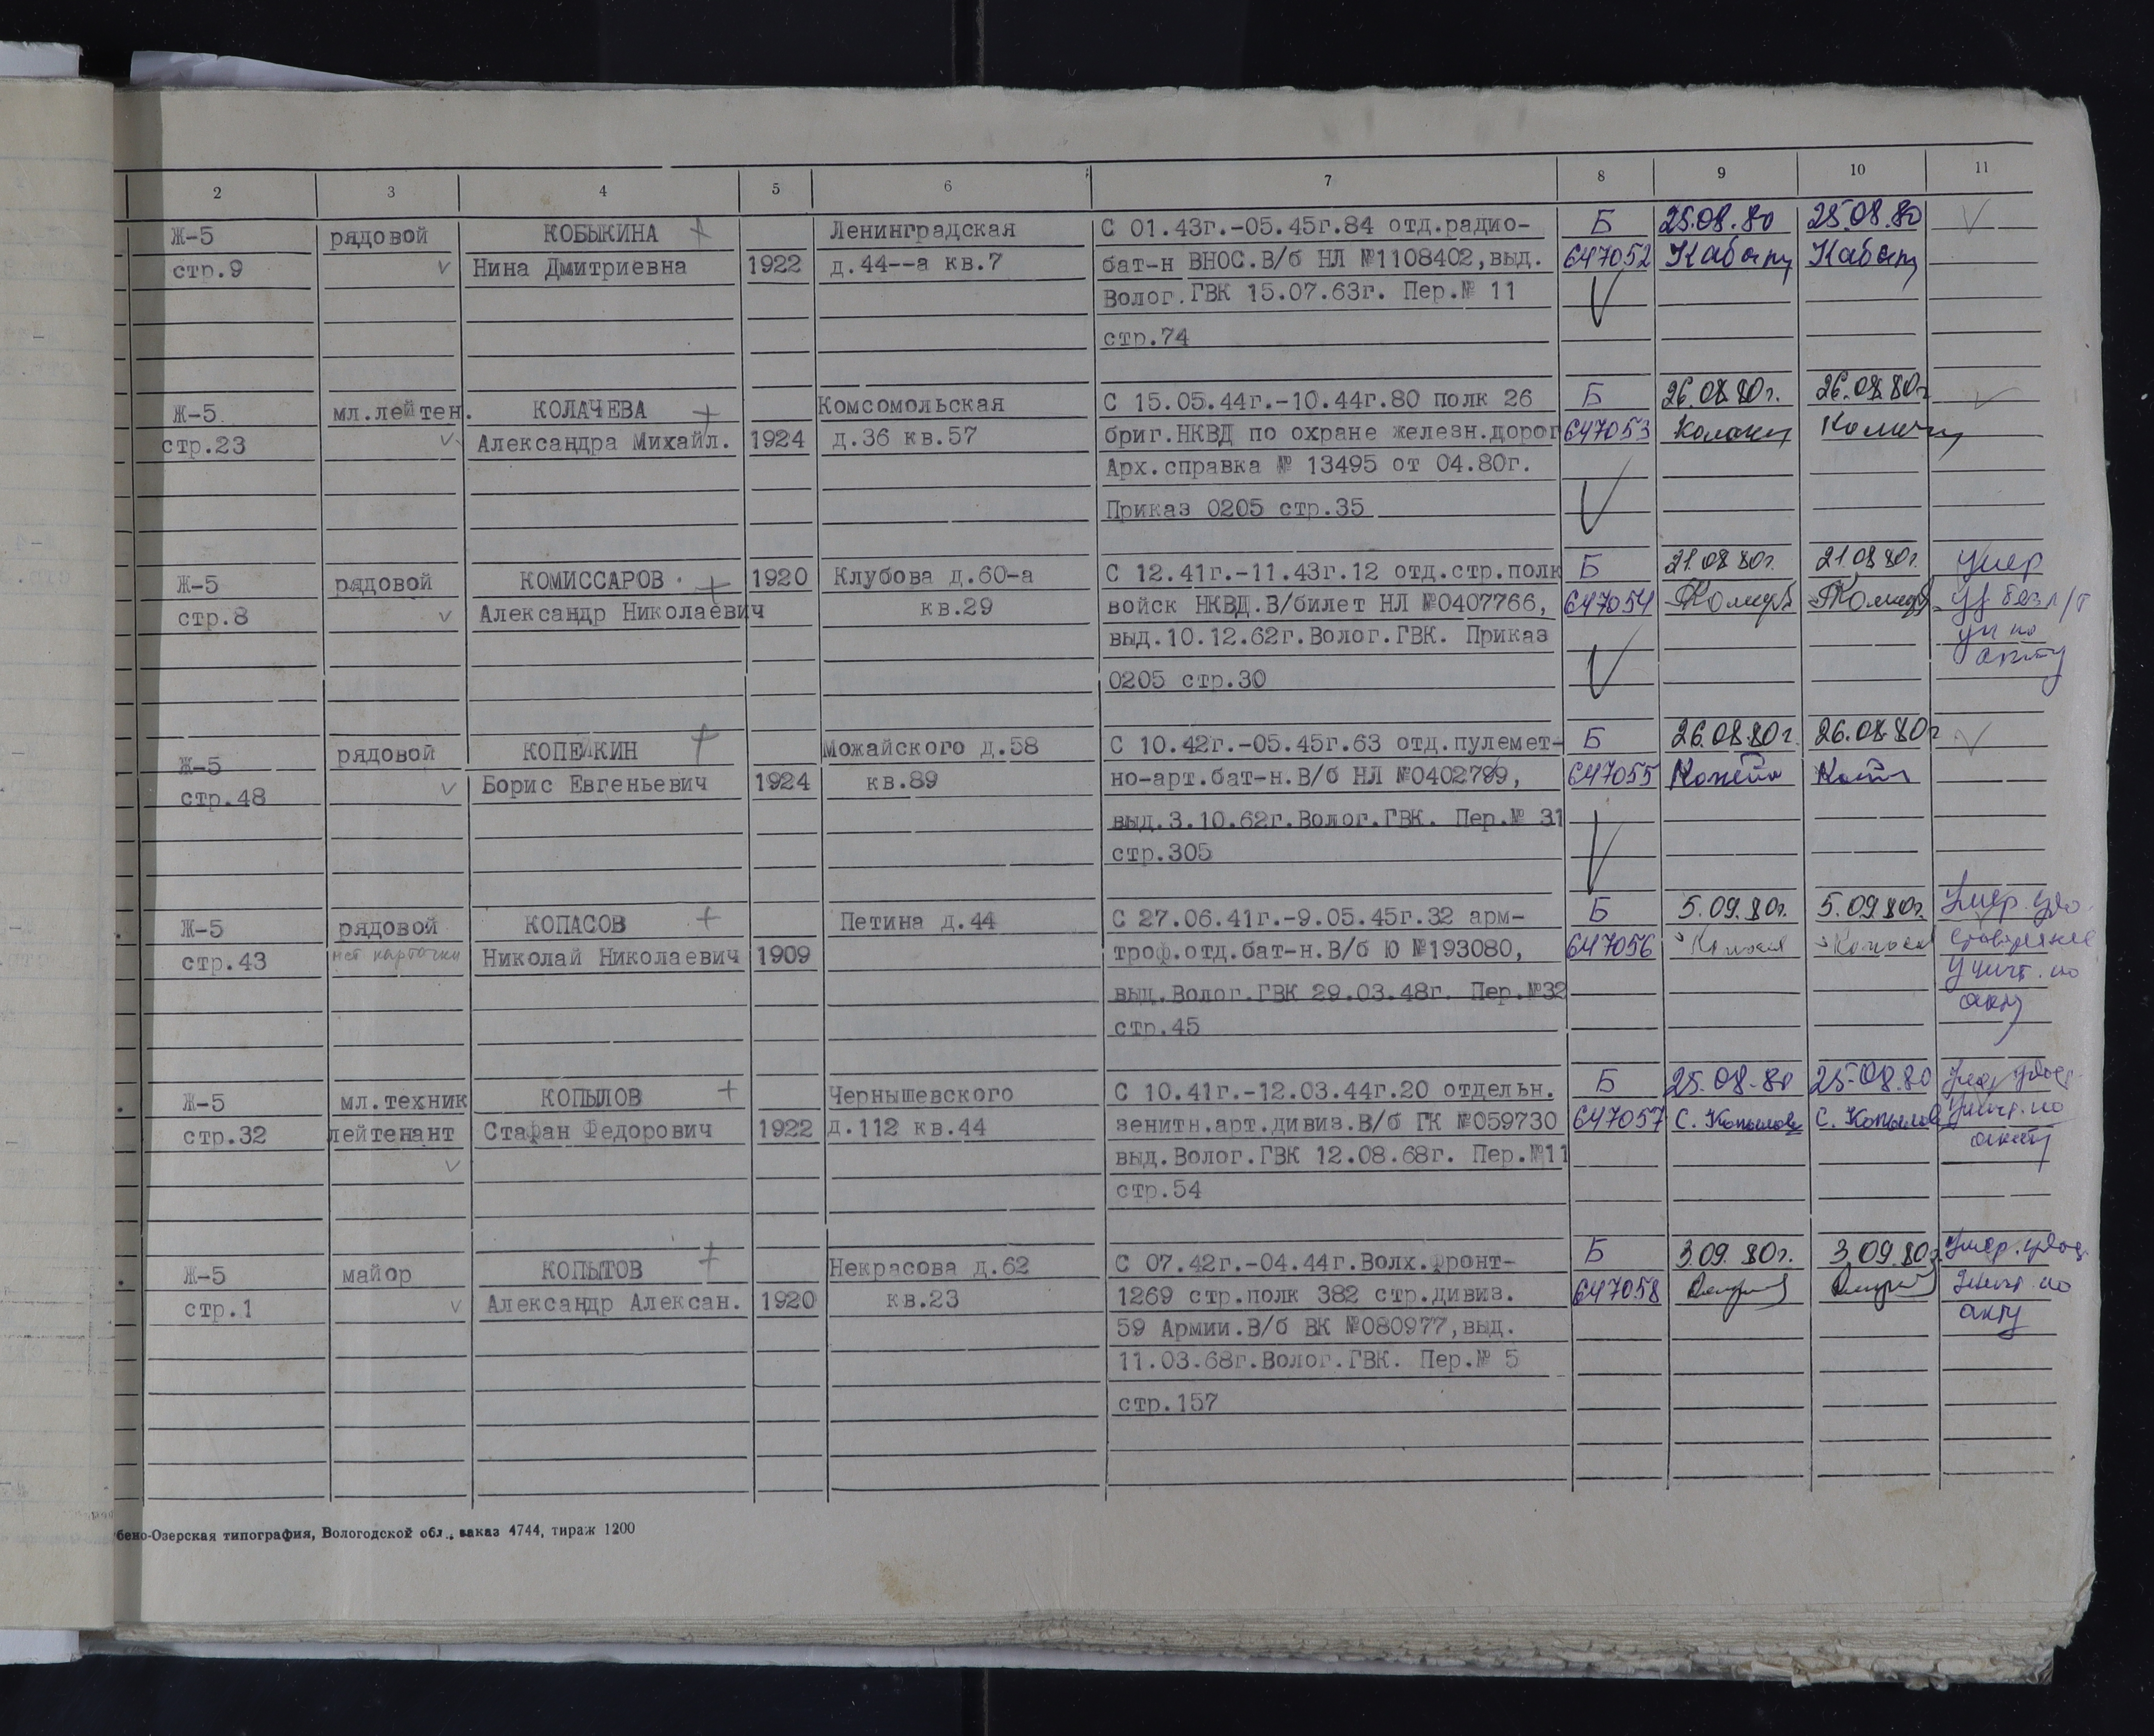 2 3 4 5 6 7 8 9 10 11
Ж-5 рядовой КОБЫКИНА Ленинградская С 01.43г.-05.45г.84 отд.радио- Б 25.08.80 25.08.80
стр.9 Нина Дмитриевна 1922 д.44--а кв.7 бат-н ВНОС.В/б НЛ №1108402,выд. 647052
Волог.ГВК 15.07.63г. Пер.№ 11
стр.74
Ж-5 мл.лейтен. КОЛАЧЕВА Комсомольская С 15.05.44г.-10.44г.80 полк 26 Б 26.08.80г. 26.08.80г
стр.23 Александра Михайл. 1924 д.36 кв.57 бриг.НКВД по охране железн.дорог 647053
Арх.справка № 13495 от 04.80г.
Приказ 0205 стр.35
Ж-5 рядовой КОМИССАРОВ 1920 Клубова д.60-а С 12.41г.-11.43г.12 отд.стр.полк Б 21.08.80г. 21.08.80г. умер
стр.8 Александр Николаевич кв.29 войск НКВД.В/билет НЛ №0407766, 647054
выд.10.12.62г.Волог.ГВК. Приказ ун по
0205 стр.30 акту
рядовой КОПЕЙКИН Можайского д.58 С 10.42г.-05.45г.63 отд.пулемет- Б 26.08.80г. 26.08.80г
Ж-5 Борис Евгеньевич 1924 кв.89 но-арт.бат-н.В/б НЛ №0402799, 647055
стр.48 выд.3.10.62г.Волог.ГВК. Пер.№ 31
стр.305
Ж-5 рядовой КОПАСОВ Петина д.44 С 27.06.41г.-9.05.45г.32 арм- Б 5.09.80г. 5.09.80г. Умер. удо.
стр.43 нет карточки Николай Николаевич 1909 троф.отд.бат-н.В/б Ю №193080, 647056
выд.Волог.ГВК 29.03.48г. Пер.№32 Уничт. по
стр.45 акту
Ж-5 мл.техник КОПЫЛОВ Чернышевского С 10.41г.-12.03.44г.20 отдельн. Б 25.08.80 25.08.80
стр.32 лейтенант Стафан Федорович 1922 д.112 кв.44 зенитн.арт.дивиз.В/б ГК №059730 647057 С. Копылов С. Копылов Уничт. по
выд.Волог.ГВК 12.08.68г. Пер.№11 акту
стр.54
Ж-5 майор КОПЫТОВ Некрасова д.62 С 07.42г.-04.44г.Волх.Фронт- Б 3.09.80г. 3.09.80г Умер. удос.
стр.1 Александр Алексан. 1920 кв.23 1269 стр.полк 382 стр.дивиз. 647058 Уничт. по
59 Армии.В/б ВК №080977,выд. акту
11.03.68г.Волог.ГВК. Пер.№ 5
стр.157
бено-Озерская типография, Вологодской обл., заказ 4744, тираж 1200